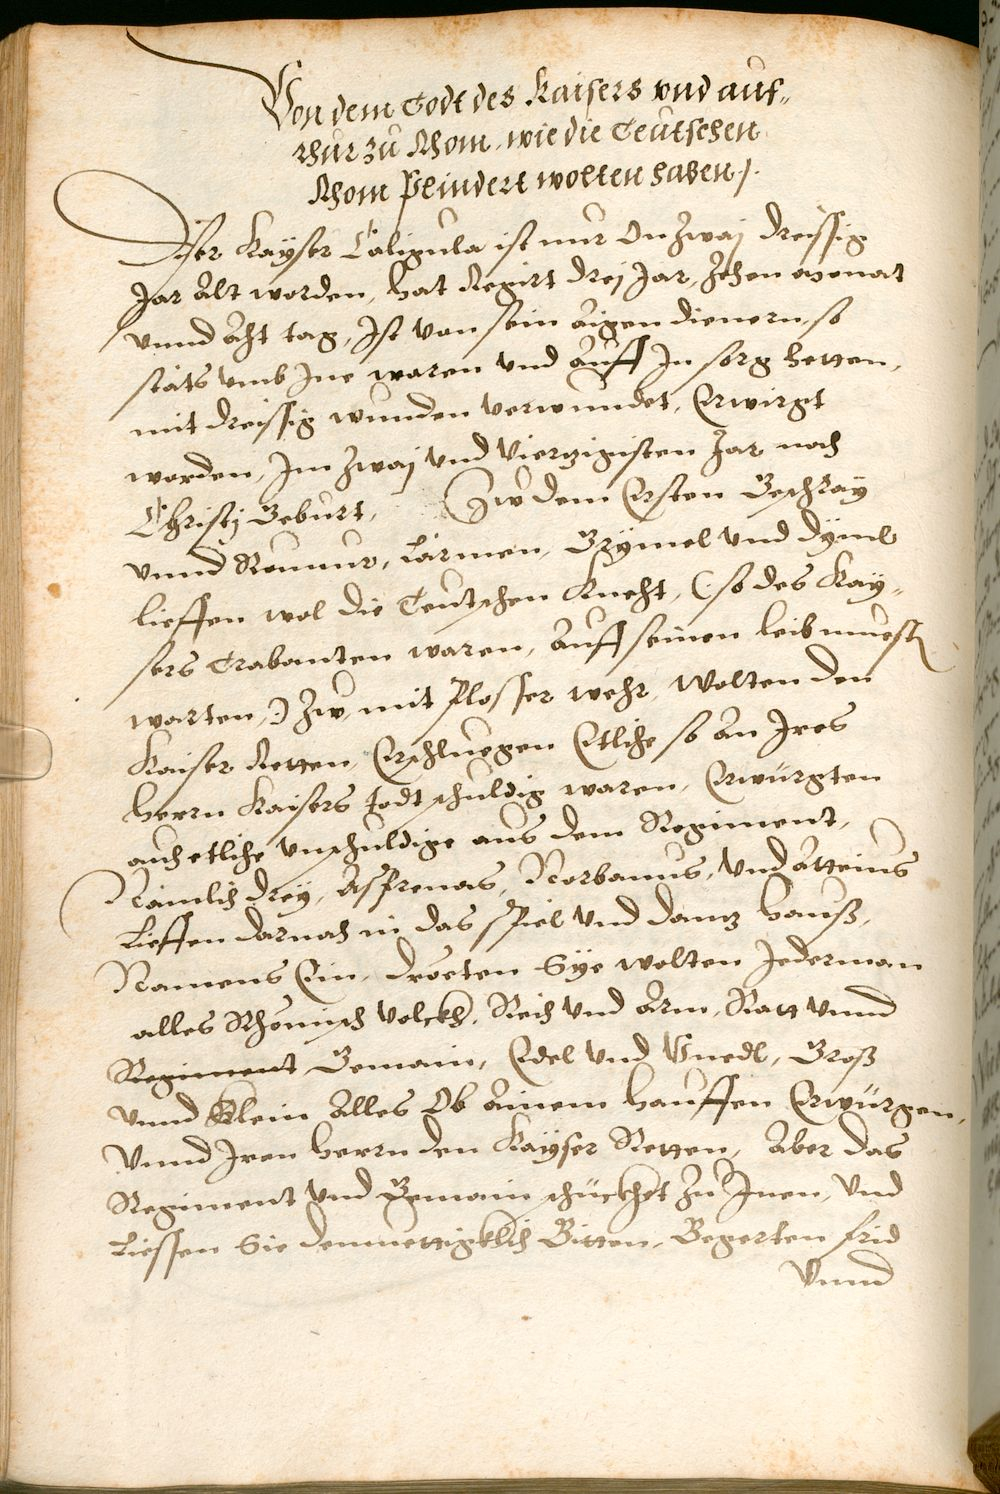 Von dem Todt des Kaisers vnd auf„
rhur zu Rhom, wie die Teutschen
Rhom Plindert wolten haben /.
Diser Kayser Caligula ist nur On Zwaj dreissig
Jar Alt worden, hat Regirt drej Jar, Zehen monat
vnnd Acht tag, Ist von sein aigen dienern, so
stäts vmb Jne waren vnd Auff Jn sorg hetten,
mit dreissig wunden verwundet, Erwirgt
worden, Jm Zwaj vnd Viertzigisten Jar nach
Christj Geburt, Zw dem Ersten Geschray
vnnd Rumur, Lärmen, Gtymel vnd dyml
lieffen wol die Teutschen Knecht, (: so des Kay„
sers Trabanten waren, Auff seinen leib muesten
warten, :) Zw, mit Plosser wehr, Wolten den
Kaiser Retten, Erschluegen Etliche so An Jres
herrn Kaisers todt schuldig waren, Erwürgten
auch etliche vnschuldige aus dem Regiment,
Nämlich drey, Asprenas, Norbanus, vnd Atteius
Lieffen darnach in das spiel vnd dantz hauß,
Namens Ein, droeten Sye wolten Jederman
alles Rhömisch volckh, Reich vnd Arm, Ratt vnnd
Regiment Gemain, Edel vnd Vnedl, Groß
vnnd Klein Alles Ob Ainem hauffen Erwürgen,
Vnnd Jren herrn den Kayser Retten, Aber das
Regiment vnd Gemain schückhet Zu Jnen, Vnd
Liessen Sie demuettigklich Bitten, Begerten frid
Vnnd